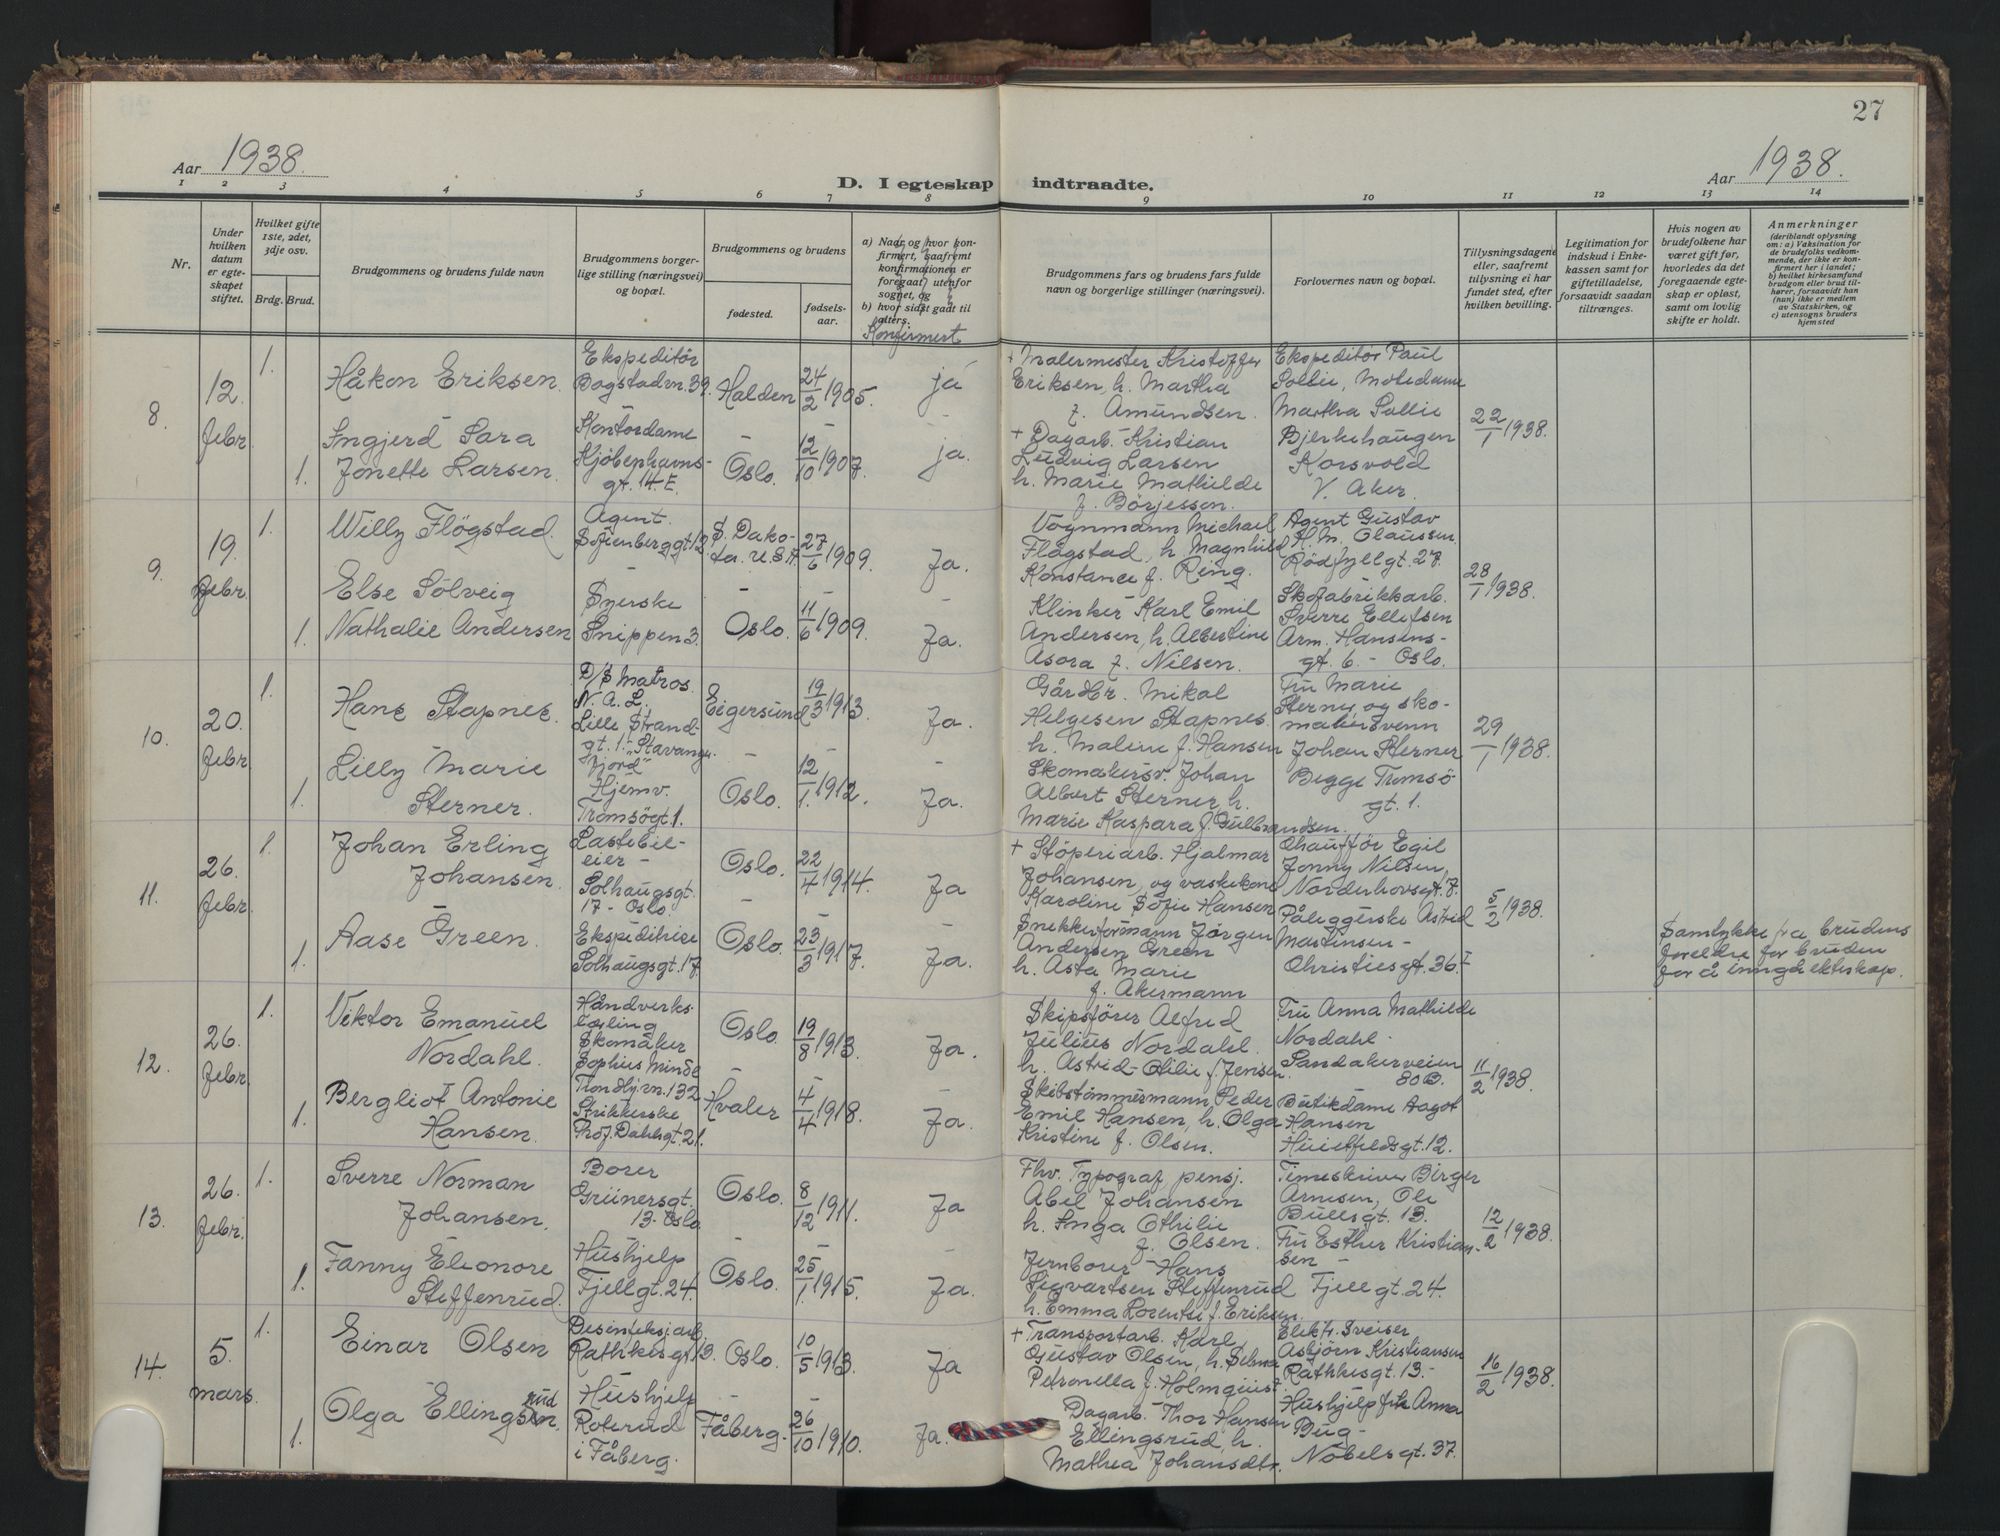 27
Aar 1938.
D. I egteskap indtraadte.
Aar 1938.
1 2 3 4 5 6 7 8 9 10 11 12 13 14
Nr.
Under hvilken datum er egteskapet stiftet.
Hvilket gifte 1ste, 2det, 3dje osv.
Brdg. Brud.
Brudgommens og brudens fulde navn
Brudgommens borgerlige stilling (næringsvei) og bopæl.
Brudgommens og brudens
fødested.
fødselsaar.
a) Naar og hvor konfirmert, saafremt konfirmationen er foregaat utenfor sognet, og
b) hvor sidst gaat til alters.
Konfirmert
Brudgommens fars og brudens fars fulde navn og borgerlige stillinger (næringsvei).
Forlovernes navn og bopæl.
Tillysningsdagene eller, saafremt tillysning ei har fundet sted, efter hvilken bevilling.
Legitimation for indskud i Enkekassen samt for giftetilladelse, forsaavidt saadan tiltrænges.
Hvis nogen av brudefolkene har været gift før, hvorledes da det foregaaende egteskap er opløst, samt om lovlig skifte er holdt.
Anmerkninger
(deriblandt oplysning om: a) Vaksination for de brudefolks vedkommende, der ikke er konfirmert her i landet; b) hvilket kirkesamfund brudgom eller brud tilhører, forsaavidt han (hun) ikke er medlem av Statskirken, og c) utensogns bruders hjemsted
8
12. febr.
1.
Håkon Eriksen.
Ekspeditör
Bogstadvn. 39.
Halden
24/2 1905.
ja
+ Malermester Kristoffer
Eriksen, h. Martha
f. Amundsen.
Ekspeditör Paul
Sollie, Motedame
Martha Sollie
Bjerkehaugen
Korsvold
V. Aker.
22/1 1938.
1.
Ingjerd Sara
Jonette Larsen.
Kontordame
Kjöbenhavns-
gt. 14. E.
Oslo.
12/10 1907.
ja.
+ Dagarb. Kristian
Ludvig Larsen
h. Marie Mathilde
f. Börjesson.
9.
19. febr.
1.
Willy Flögstad.
Agent.
Sofienberggt. 12
S. Dako-
ta. U.S.A.
27/6 1909.
Ja.
Vognmann Michael
Flågstad, h. Magnhild
Konstance f. Ring.
Agent Gustav
H. M. Olaussen
Rödfyllgt. 27.
28/1 1938.
1.
Else Solveig
Nathalie Andersen
Syerske
Snippen 3.
Oslo.
11/6 1909.
Ja.
Klinker Karl Emil
Andersen, h. Albertine
Asora f. Nilsen.
Skofabrikkarb.
Sverre Ellefsen
Arm. Hansens-
gt. 6. - Oslo.
10.
20. febr.
1.
Hans Stapnes.
D/S Matros.
N. A. L.
Lille Strand-
gt. 1. - "Stavanger-
fjord"
Eigersund
19/3 1913.
Ja.
Gårdbr. Mikal
Helgesen Stapnes.
h. Maline f. Hansen
Fru Marie
Sterner og sko-
makersvenn
Johan Sterner
Begge Tromsö
gt. 1.
29/1 1938.
1.
Lilly Marie
Sterner.
Hjemv.
Tromsögt 1.
Oslo.
12/1. 1912.
Ja.
Skomakersv. Johan
Albert Sterner, h.
Marie Kaspara f. Gulbrandsen.
11.
26. febr.
1.
Johan Erling
Johansen.
Lastebil-
eier -
Solhaugsgt.
17 - Oslo.
Oslo.
22/4 1914.
Ja
+ Stöperiarb. Hjalmar
Johansen, og vaskekone
Karoline Sofie Hansen
Chauffør Egil
Jonny Nilsen,
Norderhovsgt. 7.
5/2 1938.
1.
Aase Green.
Ekspeditrise
Solhaugsgt. 17
Oslo.
23/3 1917.
Ja.
Snekkerformann Jörgen
Andersen Green
h. Asta Marie
f. Akermann
Påleggerske Astrid
Martinsen -
Christiesgt. 36. I
Samtykke fra brudens
foreldre for bruden
for å inngå ekteskap.
12.
26. febr.
1.
Viktor Emanuel
Nordahl.
Håndverks-
lærling
Skomaker
Sophies Minde
Trondhj.vn. 132
Oslo.
19/8 1913.
Ja.
Skipsförer Alfred
Julius Nordahl.
h. Astrid Otilie f. Jensen.
Fru Anna Mathilde
Nordahl.
Sandakerveien
80 B.
11/2 1938.
1.
Bergliot Antonie
Hansen.
Strikkerske
Prof. Dahlsgt. 21.
Hvaler
4/4 1918.
Ja.
Skibstömmermann Peder
Emil Hansen, h. Olga
Kristine f. Olsen.
Butikdame Aagot
Hansen
Huitfeldsgt. 12.
13.
26. febr.
1.
Sverre Norman
Johansen.
Borer
Grünersgt.
13. Oslo
Oslo.
8/12 1911.
Ja
Fhv. Typograf pensj.
Abel Johansen
h. Inga Othilie
f. Olsen.
Timeskriver Birger
Arnesen, Ole
Bullsgt. 13.
12/2 1938.
1.
Fanny Eleonore
Steffenrud.
Hushjelp
Fjellgt. 24.
Oslo.
25/1. 1915.
Ja.
Jernborer Hans
Sigvartsen Steffenrud
h. Emma Lorentse f. Eriksen.
Fru Esther Kristian-
sen -
Fjellgt. 24.
14.
5. mars.
1.
Einar Olsen
Desinfeksj.arb.
Rathkesgt. 13.
Oslo.
10/5 1913.
Ja
+ Transportarb. Karl
Gustav Olsen, h. Selma
Petronella f. Holmquist.
Elektr. Sveiser
Asbjörn Kristiansen
Rathkesgt. 13. -
16/2 1938.
1.
Olga Ellingsrud
Hushjelp
Roterud
i Fåberg.
Fåberg.
26/10 1910.
Ja.
Dagarb. Thor Hansen
Ellingsrud, h.
Mathea Johansdtr.
Hushjelp frk Anna
Bug -
Nobelsgt. 37.